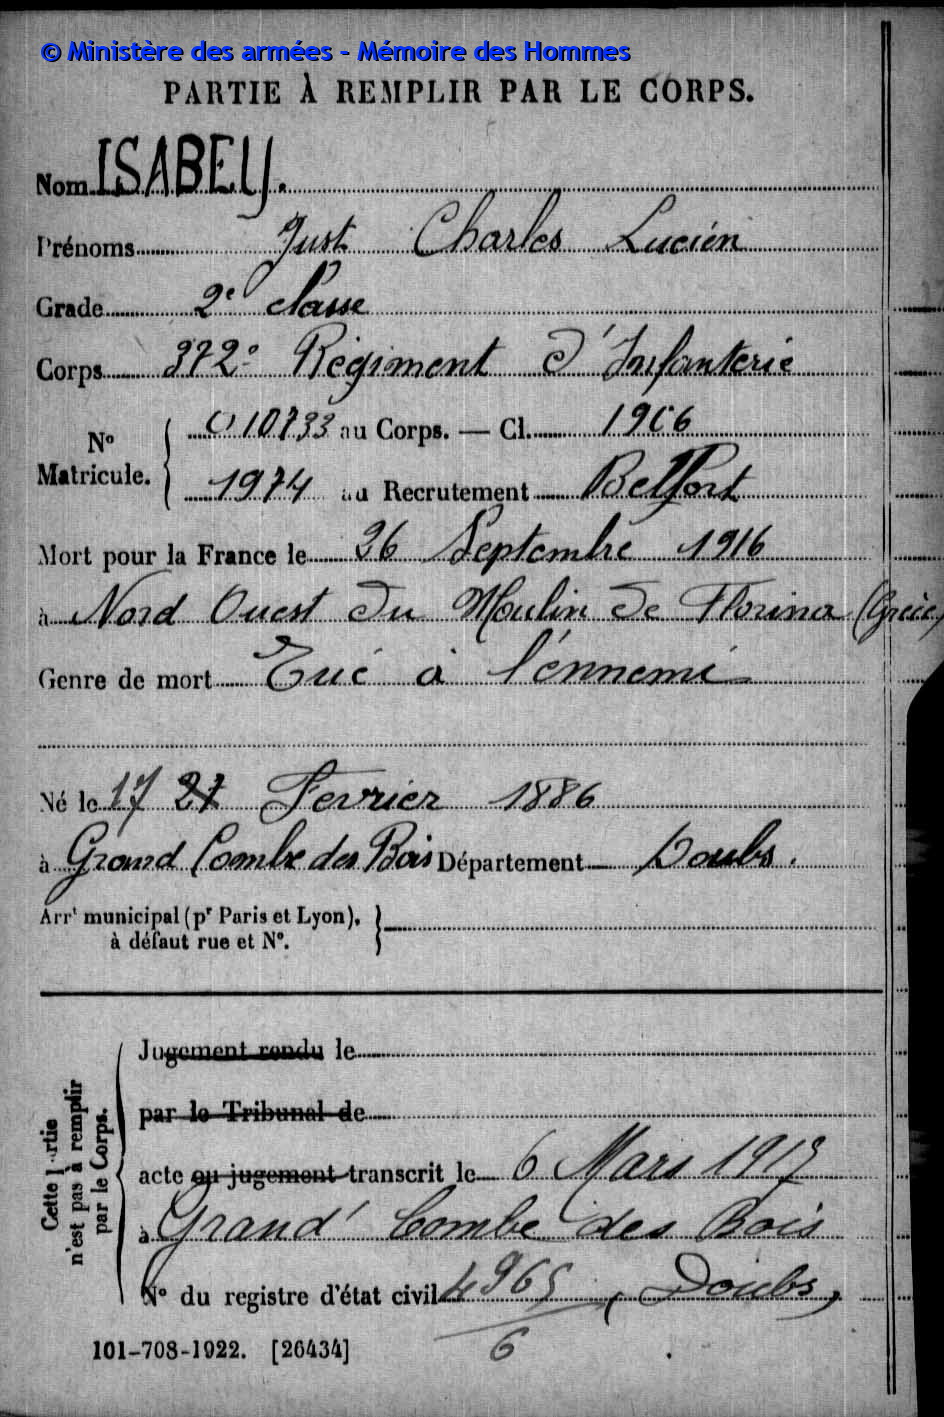 © Ministère des armées - Mémoire des Hommes
PARTIE À REMPLIR PAR LE CORPS.
Nom ISABEY.
Prénoms Just Charles Lucien
Grade 2e classe
Corps 372e Régiment d'Infanterie
No Matricule. { 010733 au Corps. — Cl. 1906
1974 au Recrutement Belfort
Mort pour la France le 26 Septembre 1916
à Nord Ouest du Moulin de Florina (Grèce)
Genre de mort Tué à l'énnemi
Né le 17 27 Fevrier 1886
à Grand Combe des Bois Département Doubs.
Arrt municipal (pr Paris et Lyon), }
à défaut rue et No.
Cette partie n'est pas à remplir par le Corps.
Jugement rendu le
par le Tribunal de
acte ou jugement transcrit le 6 Mars 1917
à Grand' Combe des Bois
No du registre d'état civil (Doubs)
4965/6
101-708-1922. [26434]